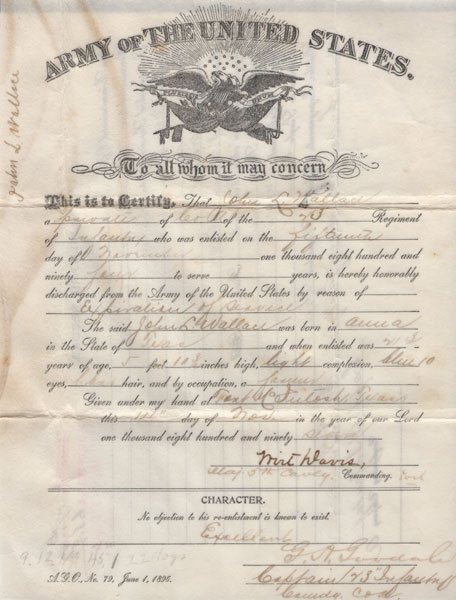 ARMY OF THE UNITED STATES.
To all whom it may concern
John L Wallace
This is to Certify, That John L Wallace
a Private of Co of the 23 Regiment
of Infantry who was enlisted on the fifteenth
day of November one thousand eight hundred and
ninety four to serve 3 years, is hereby honorably
discharged from the Army of the United States by reason of
Expiration of Service
The said John L Wallace was born in anna
in the State of Texas and when enlisted was
years of age, 5 feet inches high, light complexion, blue 10
eyes, hair, and by occupation, a farmer
Given under my hand at Fort McIntosh Texas
this day of Nov in the year of our Lord
one thousand eight hundred and ninety seven
Wirt Davis,
Maj 5th Cavly Commanding
CHARACTER.
No objection to his re-enlistment is known to exist.
Excellent
Captain 23 Infantry
A.G.O., No. 79, June 1, 1896.
Comdg Co